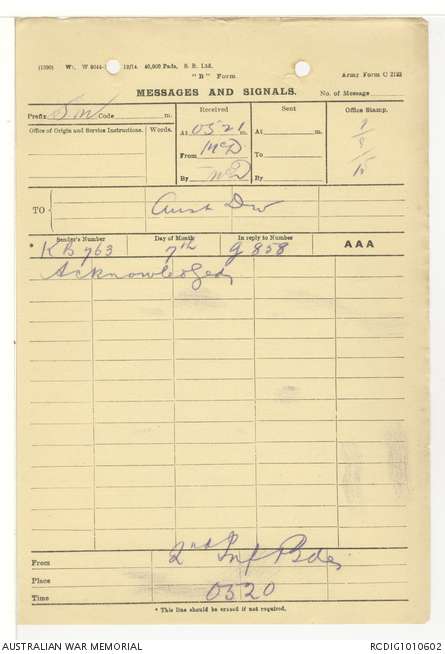 (1390) Wt. W 8044- 12/14 40,000 Pads. S. B. Ltd.
"B" Form Army Form C 2122
MESSAGES AND SIGNALS. No. of Message
Prefix Sm Code m.
Received
Sent
Office Stamp.
Office of Origin and Service Instructions.
Words.
At 0526 At m.
From McD To
By McD By
7/8/15
TO Aust Div
Sender's Number Day of Month In reply to Number AAA
* KB 763 7th G 858
Acknowledged
From 2nd Inf Bde
Place
Time 0520
* This line should be erased if not required.
AUSTRALIAN WAR MEMORIAL RCDIG1010602